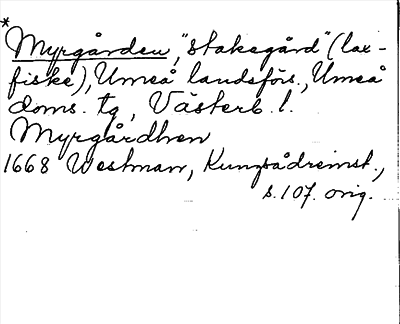 *
Myrgården, "stakegård" (lax-
fiske), Umeå landsförs., Umeå
doms. tg, Västerb. l.
Myrgårdhen
1668 Westman, Kungsådreinst.,
s. 107. orig.